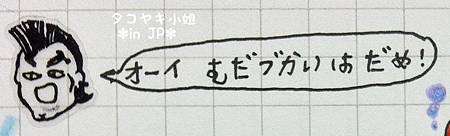 タコヤキ小姐
*in JP*
オーイ むだづかいはだめ!